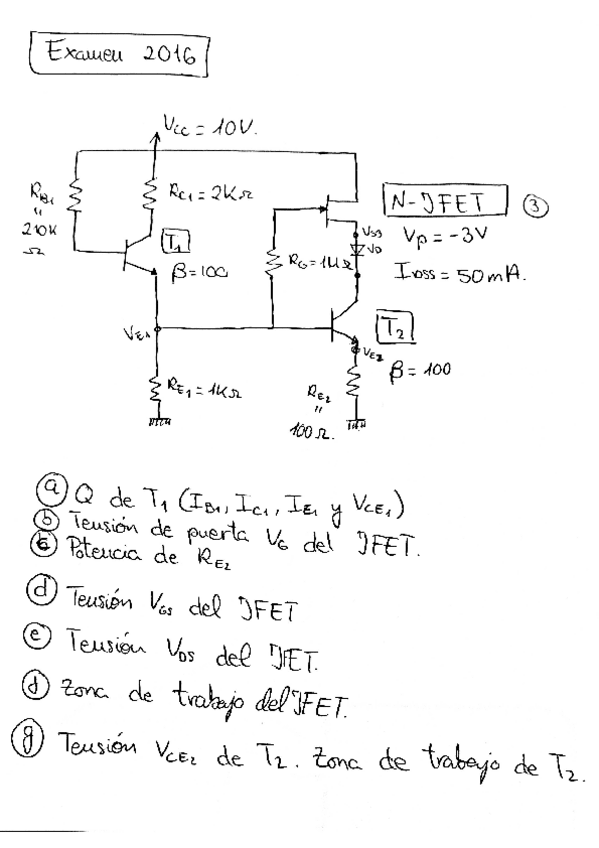 Examen 2016
Vcc = 10V.
RB1 = 210K Ω
RC1 = 2KΩ
T1
β = 100
VE1
RE1 = 1KΩ
RG = 1MΩ
N-JFET
3
Vp = -3V
IDSS = 50mA.
VSS
VD
T2
VE2
β = 100
RE2 = 100Ω.
a) Q de T1 (IB1, IC1, IE1 y VCE1)
b) Tensión de puerta VG del JFET.
c) Potencia de RE2
d) Tensión VGS del JFET
e) Tensión VDS del JFET.
f) Zona de trabajo del JFET.
g) Tensión VCE2 de T2. Zona de trabajo de T2.